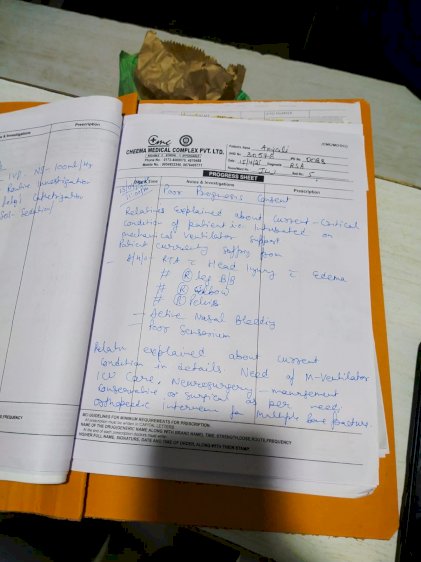 IVF - NS - 100ml/Hr
Routine Investigation
CHEEMA MEDICAL COMPLEX PVT. LTD.
Patients Name Anjali
Date
Diagnosis RTA
Bed No. 5
PROGRESS SHEET
Date Time Notes & Investigations Prescription
Prescription
& Investigations
Poor Prognosis Consent
Relatives Explained about current - Critical
Condition of patient i.e. Intubated on
mechanical Ventilator Support
Patient currently suffering from
RTA c Head Injury c Edema
# R leg B/B
# R Elbow
# R Pelvis
- Active Nasal Bleeding
- Poor Sensorium
explained about current
condition in details. Need of M-Ventilator
ICU Care, Neurosurgery - management
Conservative or Surgical as per need,
Orthopedic Intervention for Multiple bone fracture.
MCI GUIDELINES FOR MINIMUM REQUIREMENTS FOR PRESCRIPTION.
All prescription must be written in CAPITAL LETTERS
NAME OF THE DRUG(GENERIC NAME ALONG WITH BRAND NAME), TIME, STRENGTH,DOSE,ROUTE,FREQUENCY
At the end of each prescription doctors must enter:
HIS/HER FULL NAME, SIGNATURE, DATE AND TIME OF ORDER, ALONG WITH THEIR STAMP